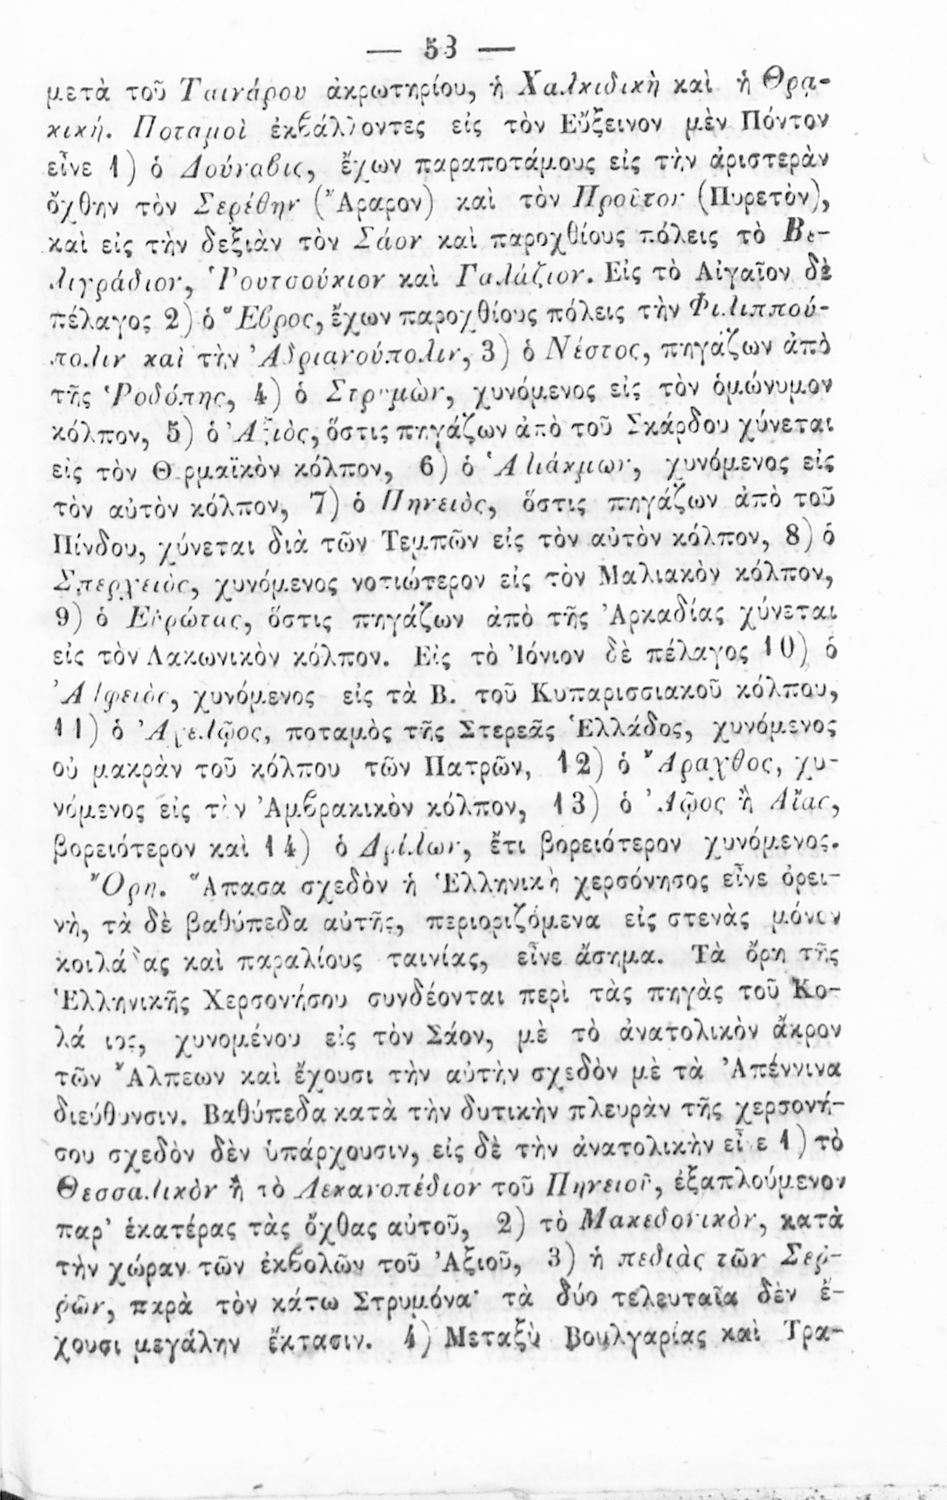 — 53 —
μετὰ τοῦ Ταινάρου ἀκρωτηρίου, ἡ Χαλκιδικὴ καὶ ἡ Θρᾳ-
κική. Ποταμοὶ ἐκβάλλοντες εἰς τὸν Εὔξεινον μὲν Πόντον
εἶνε 1) ὁ Δούναβις, ἔχων παραποτάμους εἰς τὴν ἀριστερὰν
ὄχθην τὸν Σερέθην (Ἄραρον) καὶ τὸν Προῦτον (Πυρετὸν),
καὶ εἰς τὴν δεξιὰν τὸν Σάον καὶ παροχθίους πόλεις τὸ Βε-
λιγράδιον, Ῥουτσούκιον καὶ Γαλάζιον. Εἰς τὸ Αἰγαῖον δὲ
πέλαγος 2) ὁ Ἕβρος, ἔχων παροχθίους πόλεις τὴν Φιλιππού-
πολιν καὶ τὴν Ἀδριανούπολιν, 3) ὁ Νέστος, πηγάζων ἀπὸ
τῆς Ῥοδόπης, 4) ὁ Στρυμὼν, χυνόμενος εἰς τὸν ὁμώνυμον
κόλπον, 5) ὁ Ἀξιὸς, ὅστις πηγάζων ἀπὸ τοῦ Σκάρδου χύνεται
εἰς τὸν Θερμαϊκὸν κόλπον, 6) ὁ Ἁλιάκμων, χυνόμενος εἰς
τὸν αὐτὸν κόλπον, 7) ὁ Πηνειὸς, ὅστις πηγάζων ἀπὸ τοῦ
Πίνδου, χύνεται διὰ τῶν Τεμπῶν εἰς τὸν αὐτὸν κόλπον, 8) ὁ
Σπερχειὸς, χυνόμενος νοτιώτερον εἰς τὸν Μαλιακὸν κόλπον,
9) ὁ Εὐρώτας, ὅστις πηγάζων ἀπὸ τῆς Ἀρκαδίας χύνεται
εἰς τὸν Λακωνικὸν κόλπον. Εἰς τὸ Ἰόνιον δὲ πέλαγος 10) ὁ
Ἀλφειὸς, χυνόμενος εἰς τὰ Β. τοῦ Κυπαρισσιακοῦ κόλπου,
11) ὁ Ἀχελῷος, ποταμὸς τῆς Στερεᾶς Ἑλλάδος, χυνόμενος
οὐ μακρὰν τοῦ κόλπου τῶν Πατρῶν, 12) ὁ Ἄραχθος, χυ-
νόμενος εἰς τὸν Ἀμβρακικὸν κόλπον, 13) ὁ Ἀῷος ἢ Αἴας,
βορειότερον καὶ 14) ὁ Δρίλων, ἔτι βορειότερον χυνόμενος.
Ὄρη. Ἅπασα σχεδὸν ἡ Ἑλληνικὴ χερσόνησος εἶνε ὀρει-
νὴ, τὰ δὲ βαθύπεδα αὐτῆς, περιοριζόμενα εἰς στενὰς μόνον
κοιλάδας καὶ παραλίους ταινίας, εἶνε ἄσημα. Τὰ ὄρη τῆς
Ἑλληνικῆς Χερσονήσου συνδέονται περὶ τὰς πηγὰς τοῦ Κο-
λάπιος, χυνομένου εἰς τὸν Σάον, μὲ τὸ ἀνατολικὸν ἄκρον
τῶν Ἄλπεων καὶ ἔχουσι τὴν αὐτὴν σχεδὸν μὲ τὰ Ἀπέννινα
διεύθυνσιν. Βαθύπεδα κατὰ τὴν δυτικὴν πλευρὰν τῆς χερσονή-
σου σχεδὸν δὲν ὑπάρχουσιν, εἰς δὲ τὴν ἀνατολικὴν εἶνε 1) τὸ
Θεσσαλικὸν ἢ τὸ Λεκανοπέδιον τοῦ Πηνειοῦ, ἐξαπλούμενον
παρ' ἑκατέρας τὰς ὄχθας αὐτοῦ, 2) τὸ Μακεδονικὸν, κατὰ
τὴν χώραν τῶν ἐκβολῶν τοῦ Ἀξιοῦ, 3) ἡ πεδιὰς τῶν Σερ-
ρῶν, παρὰ τὸν κάτω Στρυμόνα· τὰ δύο τελευταῖα δὲν ἔ-
χουσι μεγάλην ἔκτασιν. 4) Μεταξὺ Βουλγαρίας καὶ Τρα-